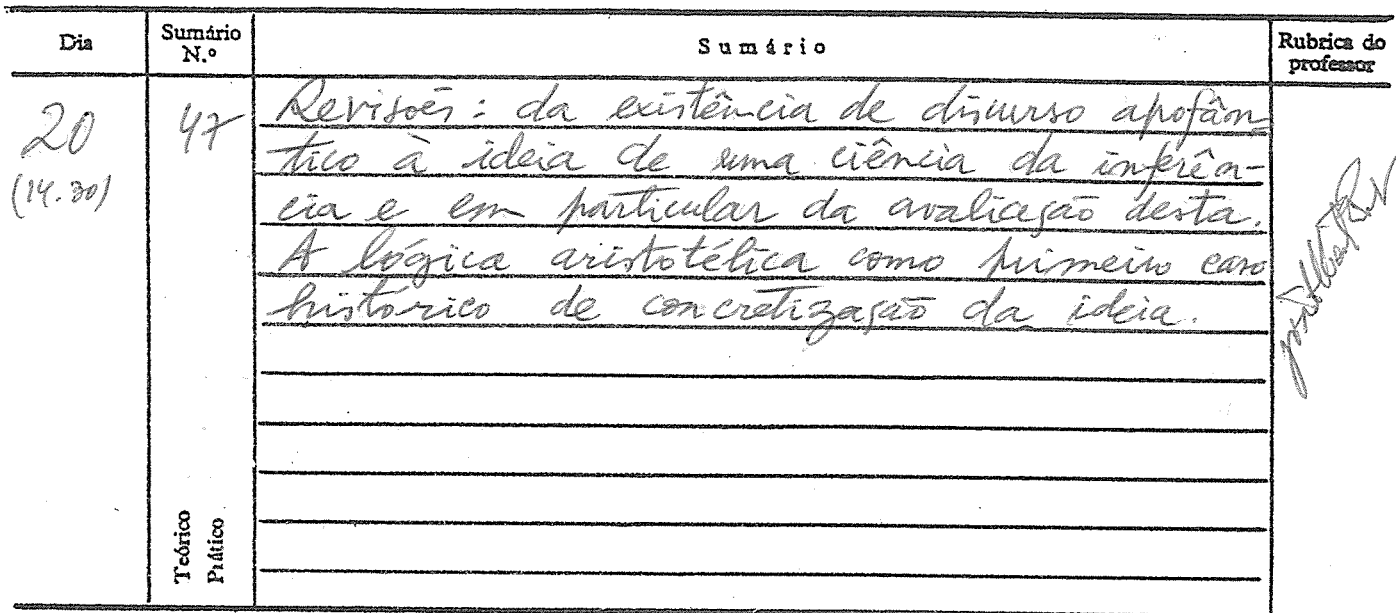 Dia
Sumário N.º
Sumário
Rubrica do professor
20
(14.30)
47
Revisões: da existência de discurso apofân-
tico à ideia de uma ciência da inferên-
cia e em particular da avaliação desta.
A lógica aristotélica como primeiro caso
histórico de concretização da ideia.
Teórico
Prático